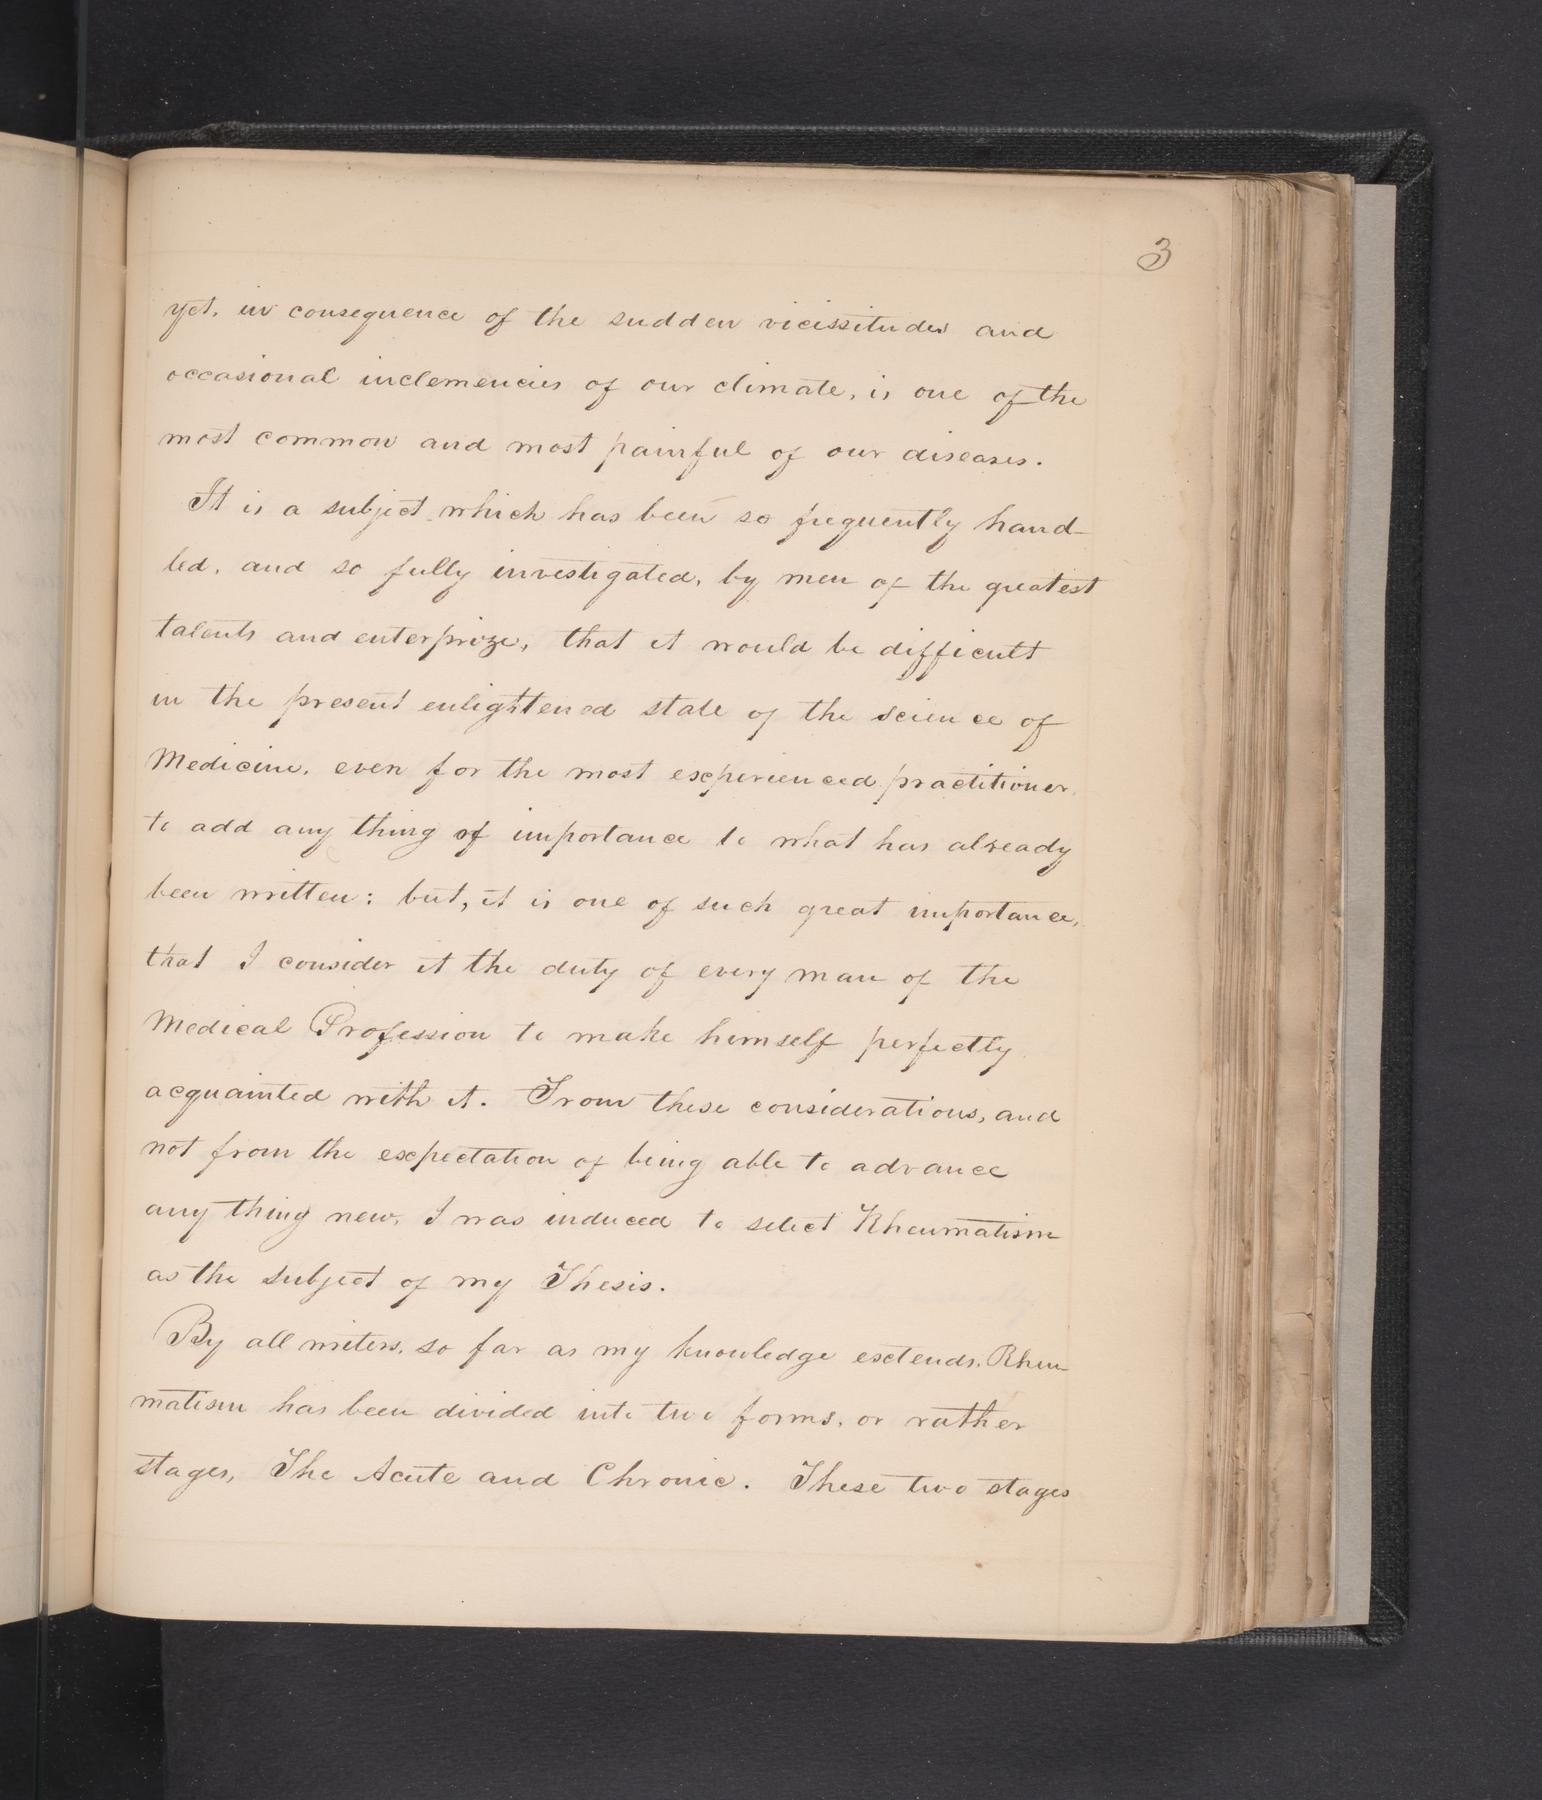 3
yet, in consequence of the sudden vicissitudes and
occasional inclemencies of our climate, is one of the
most common and most painful of our diseases.
It is a subject which has been so frequently hand-
led, and so fully investigated, by men of the greatest
talents and enterprize, that it would be difficult
in the present enlightened state of the science of
Medicine, even for the most experienced practitioner,
to add any thing of importance to what has already
been written; but, it is one of such great importance,
that I consider it the duty of every man of the
Medical Profession to make himself perfectly
acquainted with it. From these considerations, and
not from the expectation of being able to advance
any thing new, I was induced to select Rheumatism
as the subject of my Thesis.
By all writers, so far as my knowledge extends, Rheu-
matism has been divided into two forms, or rather
stages, The Acute and Chronic. These two stages